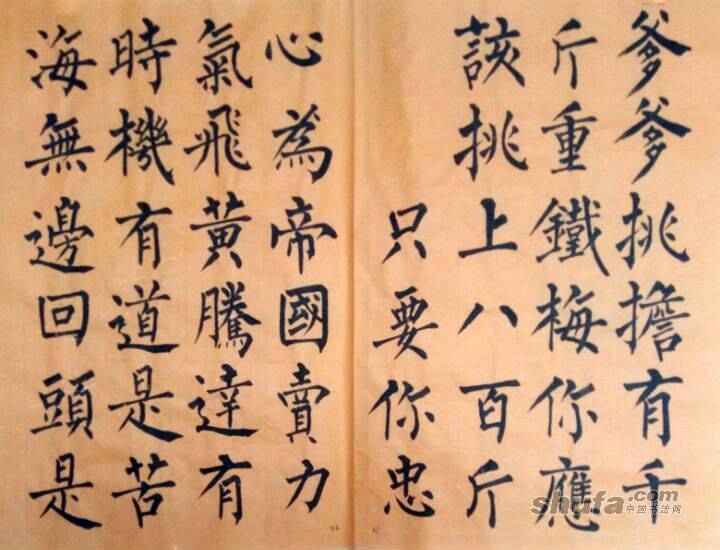 爹爹挑擔有千
斤重鐵梅你應
該挑上八百斤
只要你忠
心為帝國賣力
氣飛黃騰達有
時機有道是苦
海無邊回頭是
shufa.com
中国书法网